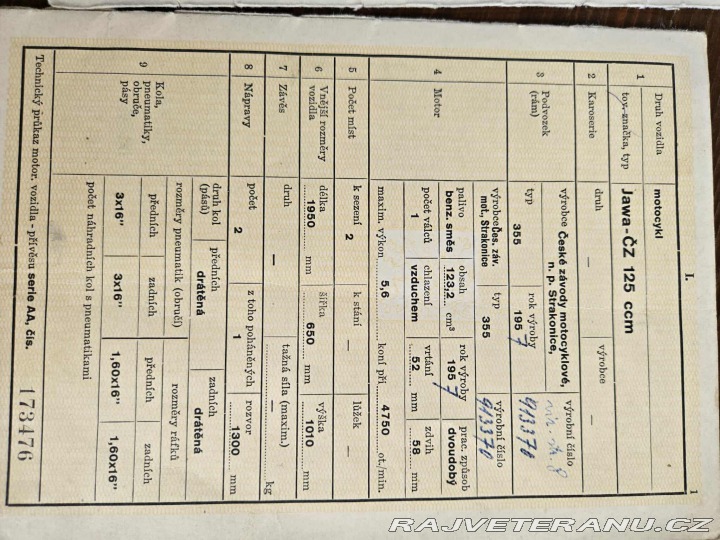 I.
1
1 Druh vozidla motocykl
tov. značka, typ Jawa-ČZ 125 ccm
2 Karoserie druh — výrobce —
3 Podvozek (rám) výrobce České závody motocyklové, n. p. Strakonice, výrobní číslo 913370
typ 355 rok výroby 1957
4 Motor výrobce Čes. záv. mot., Strakonice typ 355 výrobní číslo 913370
palivo benz. směs obsah 123,2 cm³ rok výroby 1957 prac. způsob dvoudobý
počet válců 1 chlazení vzduchem vrtání 52 mm zdvih 58 mm
maxim. výkon 5,6 koní při 4750 ot./min.
5 Počet míst k sezení 2 k stání — lůžek —
6 Vnější rozměry vozidla délka 1950 mm šířka 650 mm výška 1010 mm
7 Závěs druh — tažná síla (maxim.) — kg
8 Nápravy počet 2 z toho poháněných 1 rozvor 1300 mm
9 Kola, pneumatiky, obruče, pásy druh kol (pásů) předních drátěná zadních drátěná
rozměry pneumatik (obručí) rozměry ráfků
předních 3x16" zadních 3x16" předních 1,60x16" zadních 1,60x16"
počet náhradních kol s pneumatikami
Technický průkaz motor. vozidla - přívěsu serie AA, čís. 173476
RAJVETERANU.CZ